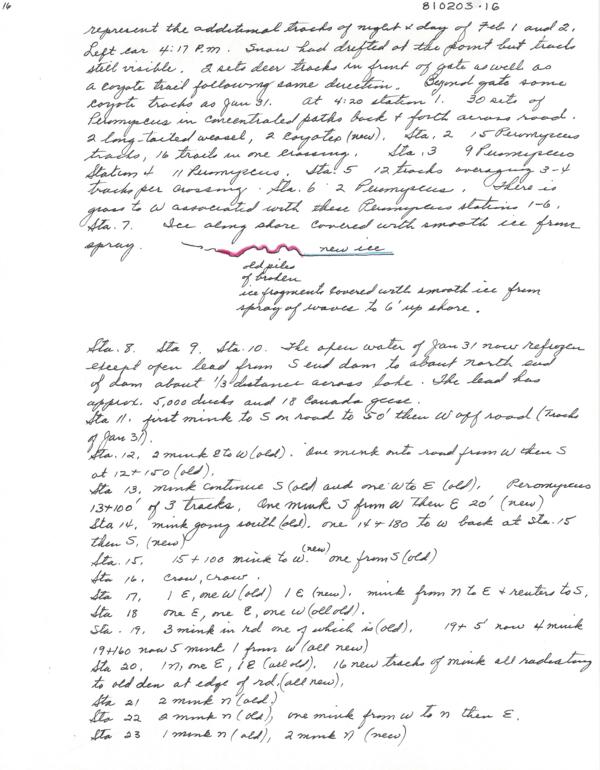 16
810203.16
represent the additional tracks of night & day of Feb 1 and 2.
Left car 4:17 P.M. Snow had drifted at the point but tracks
still visible. 2 sets deer tracks in front of gate as well as
a coyote trail following same direction. Beyond gate some
coyote tracks as Jan 31. At 4:20 station 1. 30 sets of
Peromyscus in concentrated paths back & forth across road.
2 long-tailed weasel, 2 coyotes (new). Sta. 2 15 Peromyscus
tracks, 16 trails in one crossing. Sta. 3 9 Peromyscus
Station 4 11 Peromyscus. Sta. 5 12 tracks averaging 3-4
tracks per crossing. Sta. 6 2 Peromyscus. There is
grass to W associated with these Peromyscus stations 1-6.
Sta. 7. Ice along shore covered with smooth ice from
spray.
new ice
old piles
of broken
ice fragments covered with smooth ice from
spray of waves to 6' up shore.
Sta. 8. Sta 9. Sta. 10. The open water of Jan 31 now refrozen
except open lead from S end dam to about north end
of dam about 1/3 distance across lake. The lead has
approx. 5,000 ducks and 18 Canada geese.
Sta 11. first mink to S on road to 50' then W off road (Tracks
of Jan 31).
Sta. 12, 2 mink E to W (old). One mink onto road from W then S
at 12+150 (old).
Sta 13, mink continue S (old) and one W to E (old). Peromyscus
13+100' of 3 tracks. One mink S from W then E 20' (new)
Sta 14, mink going south (old). one 14+180 to W back at Sta. 15
then S. (new)
Sta. 15, 15+100 mink to W. (new) one from S (old)
Sta 16. crow, crow.
Sta 17, 1 E, one W (old) 1 E (new). mink from N to E & reuters to S,
Sta 18 one E, one E, one W (all old).
Sta. 19, 3 mink in rd one of which is (old). 19+5' now 4 mink
19+160 now 5 mink 1 from W (all new)
Sta 20. 1 N, one E, 1 E (all old). 16 new tracks of mink all radiating
to old den at edge of rd. (all new),
Sta 21 2 mink N (old)
Sta 22 2 mink N (old), one mink from W to N then E.
Sta 23 1 mink N (old), 2 mink N (new)